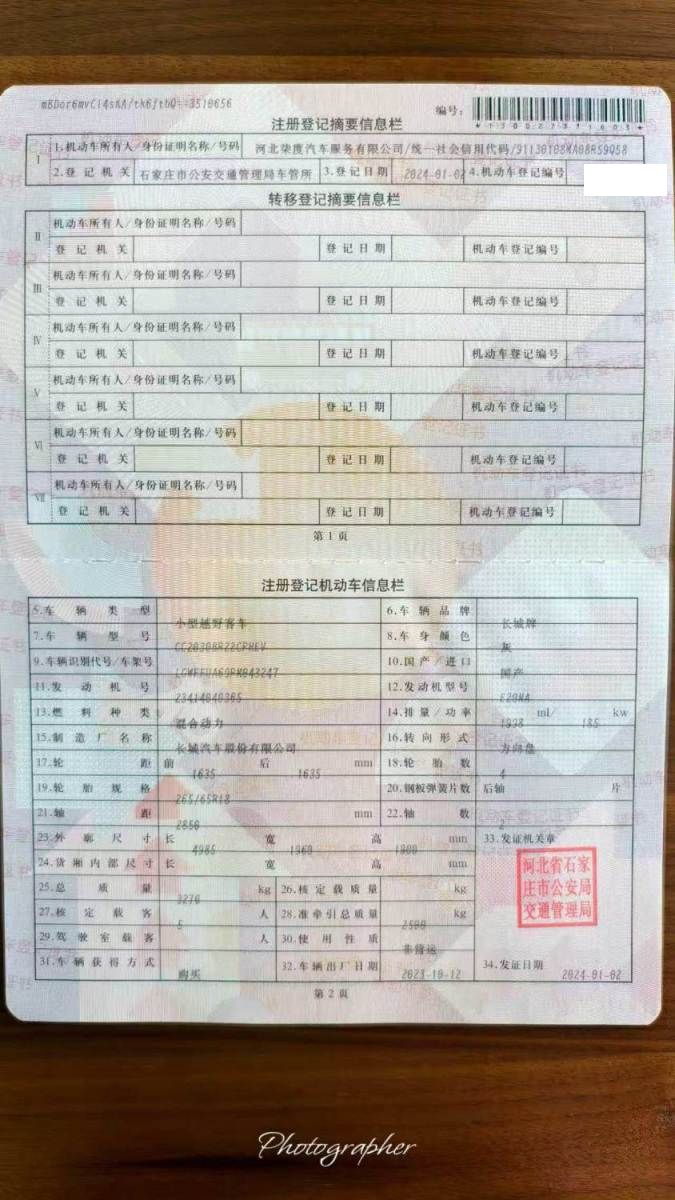 mBDor6mvCl4sKA/tk6ftbQ==3510656
编号:
注册登记摘要信息栏
I 1.机动车所有人/身份证明名称/号码 河北荣度汽车服务有限公司/统一社会信用代码/
2.登记机关 石家庄市公安交通管理局车管所 3.登记日期 2024-01-02 4.机动车登记编号
转移登记摘要信息栏
II 机动车所有人/身份证明名称/号码
登记机关 登记日期 机动车登记编号
III 机动车所有人/身份证明名称/号码
登记机关 登记日期 机动车登记编号
IV 机动车所有人/身份证明名称/号码
登记机关 登记日期 机动车登记编号
V 机动车所有人/身份证明名称/号码
登记机关 登记日期 机动车登记编号
VI 机动车所有人/身份证明名称/号码
登记机关 登记日期 机动车登记编号
VII 机动车所有人/身份证明名称/号码
登记机关 登记日期 机动车登记编号
第1页
注册登记机动车信息栏
5.车辆类型 小型越野客车 6.车辆品牌 长城牌
7.车辆型号 8.车身颜色 灰
9.车辆识别代号/车架号 10.国产/进口 国产
11.发动机号 12.发动机型号
13.燃料种类 混合动力 14.排量/功率 1998 ml/ 185 kw
15.制造厂名称 长城汽车股份有限公司 16.转向形式 方向盘
17.轮距 前 1635 后 1635 mm 18.轮胎数 4
19.轮胎规格 265/65R18 20.钢板弹簧片数 后轴 片
21.轴距 2850 mm 22.轴数 2
23.外廓尺寸 长 4985 宽 1960 高 1900 mm 33.发证机关章
24.货厢内部尺寸 长 宽 高 mm
25.总质量 3270 kg 26.核定载质量 kg
27.核定载客 5 人 28.准牵引总质量 2500 kg
29.驾驶室载客 人 30.使用性质 非营运
31.车辆获得方式 购买 32.车辆出厂日期 2023-10-12 34.发证日期 2024-01-02
河北省石家
庄市公安局
交通管理局
第2页
Photographer